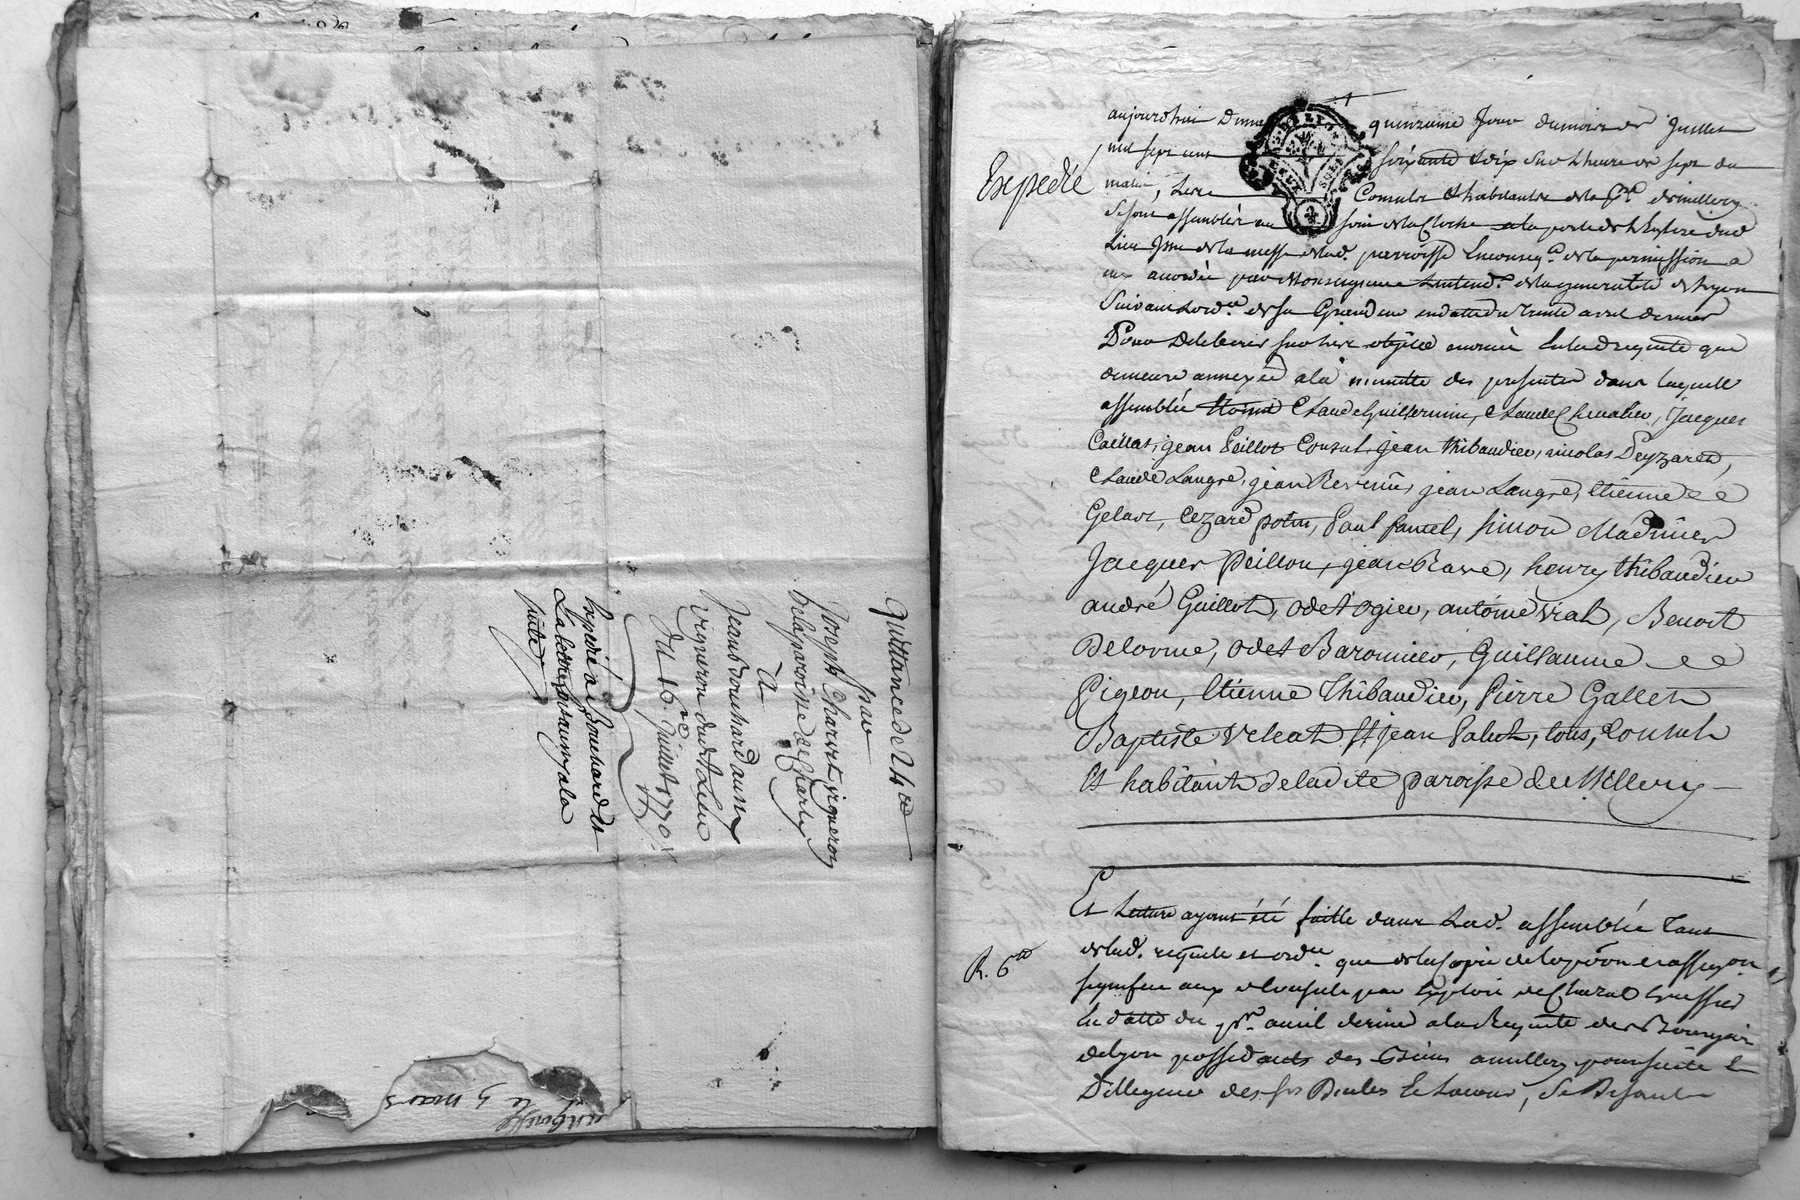 Quittance de 24ᵗᵗ
par
Joseph Charvet vigneron
de la paroisse de Charly
A
Jean Bouchard aisné
vigneron dudit Lieu
Du 16ᵉ Juillet 1770
Expedié a Bouchard et
a la
suite
le 5 mars
Expedié
aujourdhui quinzieme Jour du mois de Juillet
mil sept cent soixante & dix sur Lheure de sept du
matin, Les Consuls & habitants de la pᵉ de millery
se sont assemblés au son de la Cloche a la porte de l'Eglise dud
Lieu Issue de la messe de lad. parroisse En conseqᶜᵉ de la permission a
eux accordée par Monseigneur Lintendᵗ de la generalité de Lyon
Suivant Lordᶜᵉ de Sa Grandeur en datte du trente avril dernier
Pour Deliberer sur Les objets enoncés En lad requete qui
demeure annexée a la minutte des presentes dans laquelle
assemblée Claude Guillermin, Claude Chevalier, Jacques
Caillat, jean Peillot Consul, jean thibaudier, nicolas Peyzaret,
Claude Langre, jean Revenu, jean Langre, Etienne
Gelas, Cezard potin, Paul fanel, simon Madinier
Jacques Peillon, jean Rave, henry thibaudier
andré Guillot, odet ogier, antoine vial, Benoit
Delorme, odet Baronnier, Guillaume
Pigeon, Etienne Thibaudier, Pierre Gallet
Baptiste Veleat & jean Galict, tous, Consuls
Et habitants de ladite paroisse de Millery
Et Lecture ayant été faitte dans Lad. assemblée Tant
de lad. requete et ordᶜᵉ que de la Copie de la
R. 6ᵗᵗ
signifiée aux Consuls par Exploit de Chazal huissier
En datte du avril dernier a la Requete des Bourgeois
de Lyon possedants des Biens a millery poursuite &
Dilligence des srs